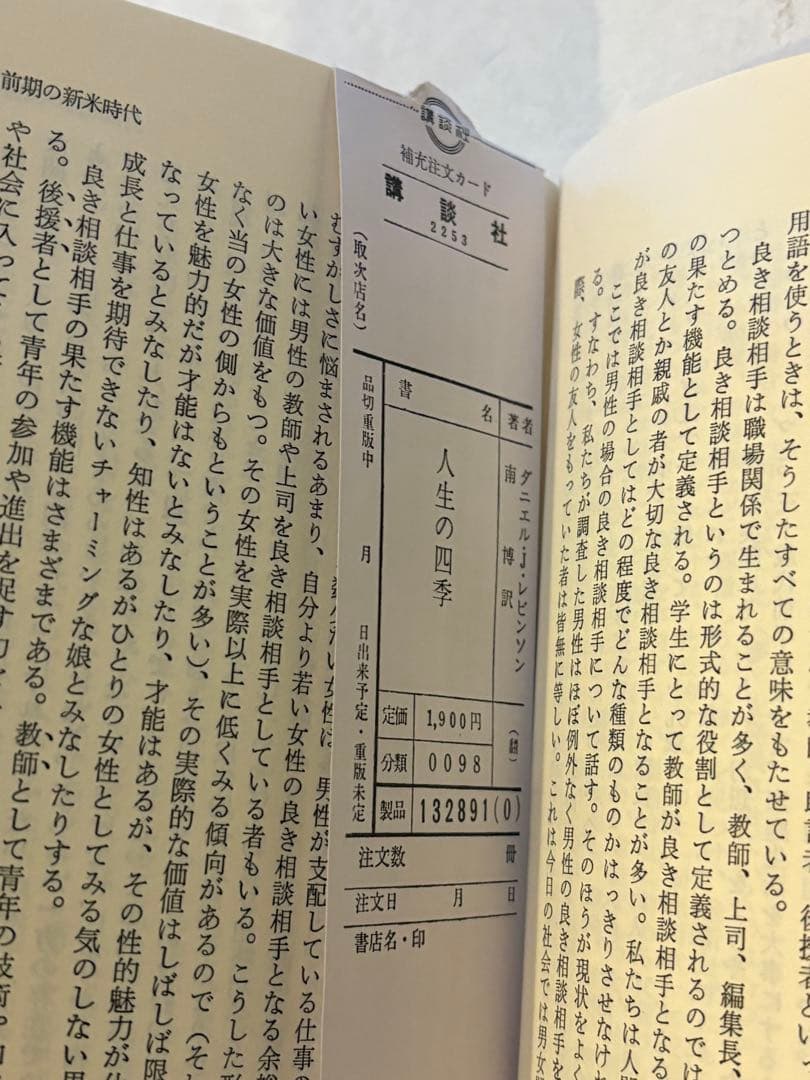 用語を使うときは、そうしたすべての意味をもたせている。
良き相談相手は職場関係で生まれることが多く、教師、上司、編集長、
つとめる。良き相談相手というのは形式的な役割として定義されるのでは
の果たす機能として定義される。学生にとって教師が良き相談相手となる
の友人とか親戚の者が大切な良き相談相手となることが多い。私たちは人
が良き相談相手としてはどの程度でどんな種類のものかはっきりさせなけ
ここでは男性の場合の良き相談相手について話す。そのほうが現状をよく
る。すなわち、私たちが調査した男性はほぼ例外なく男性の良き相談相手を
際、女性の友人をもっていた者は皆無に等しい。これは今日の社会では男女
講談社
補充注文カード
講談社
2253
(取次店名)
著者
ダニエルj・レビンソン
南博訳
(翻)
書名
人生の四季
定価 1,900円
分類 0098
製品 132891(0)
品切重版中 月 日出来予定・重版未定
注文数 冊
注文日 月 日
書店名・印
前期の新米時代
むずかしさに悩まされるあまり、自分より若い女性の良き相談相手となる余裕
い女性には男性の教師や上司を良き相談相手としている者もいる。こうした
のは大きな価値をもつ。その女性を実際以上に低くみる傾向があるので(そし
なく当の女性の側からもということが多い)、その実際的な価値はしばしば限
女性を魅力的だが才能はないとみなしたり、才能はあるが、その性的魅力が
なっているとみなしたり、知性はあるがひとりの女性としてみる気のしない男
成長と仕事を期待できないチャーミングな娘とみなしたりする。
良き相談相手の果たす機能はさまざまである。教師として青年の技術や
る。後援者として青年の参加や進出を促す
や社会に入って